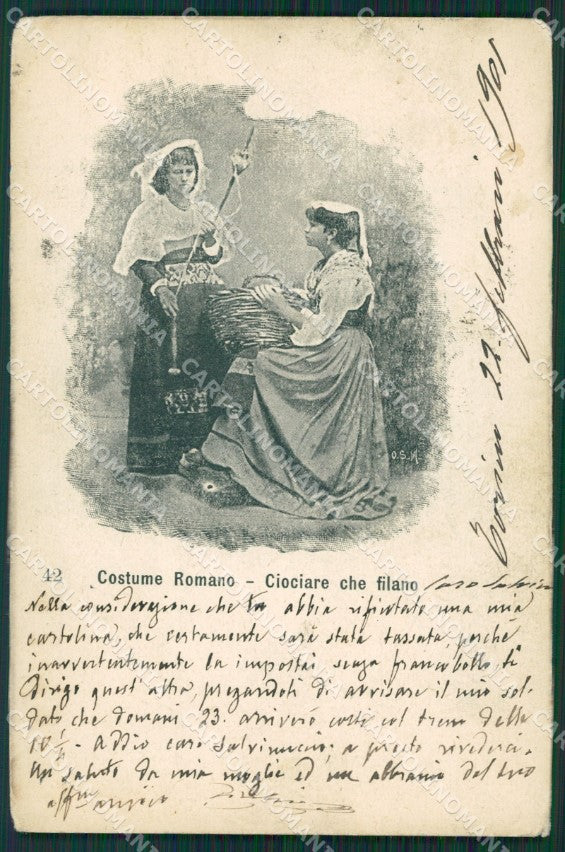 Torino 22. febbraio 1901
O.S.M.
42 Costume Romano - Ciociare che filano Caro
Nella considerazione che tu abbia rifiutato una mia
cartolina, che certamente sarà stata tassata, perchè
inavvertentemente la impostai senza francobollo, ti
dirigo quest'altra, pregandoti di avvisare il mio sol-
dato che domani 23. arriverò costì col treno delle
10 ½ - Addio caro Salvinuccio; a presto rivederci.
Un saluto da mia moglie ed un abbraccio del tuo
affmo amico
CARTOLINOMANIA